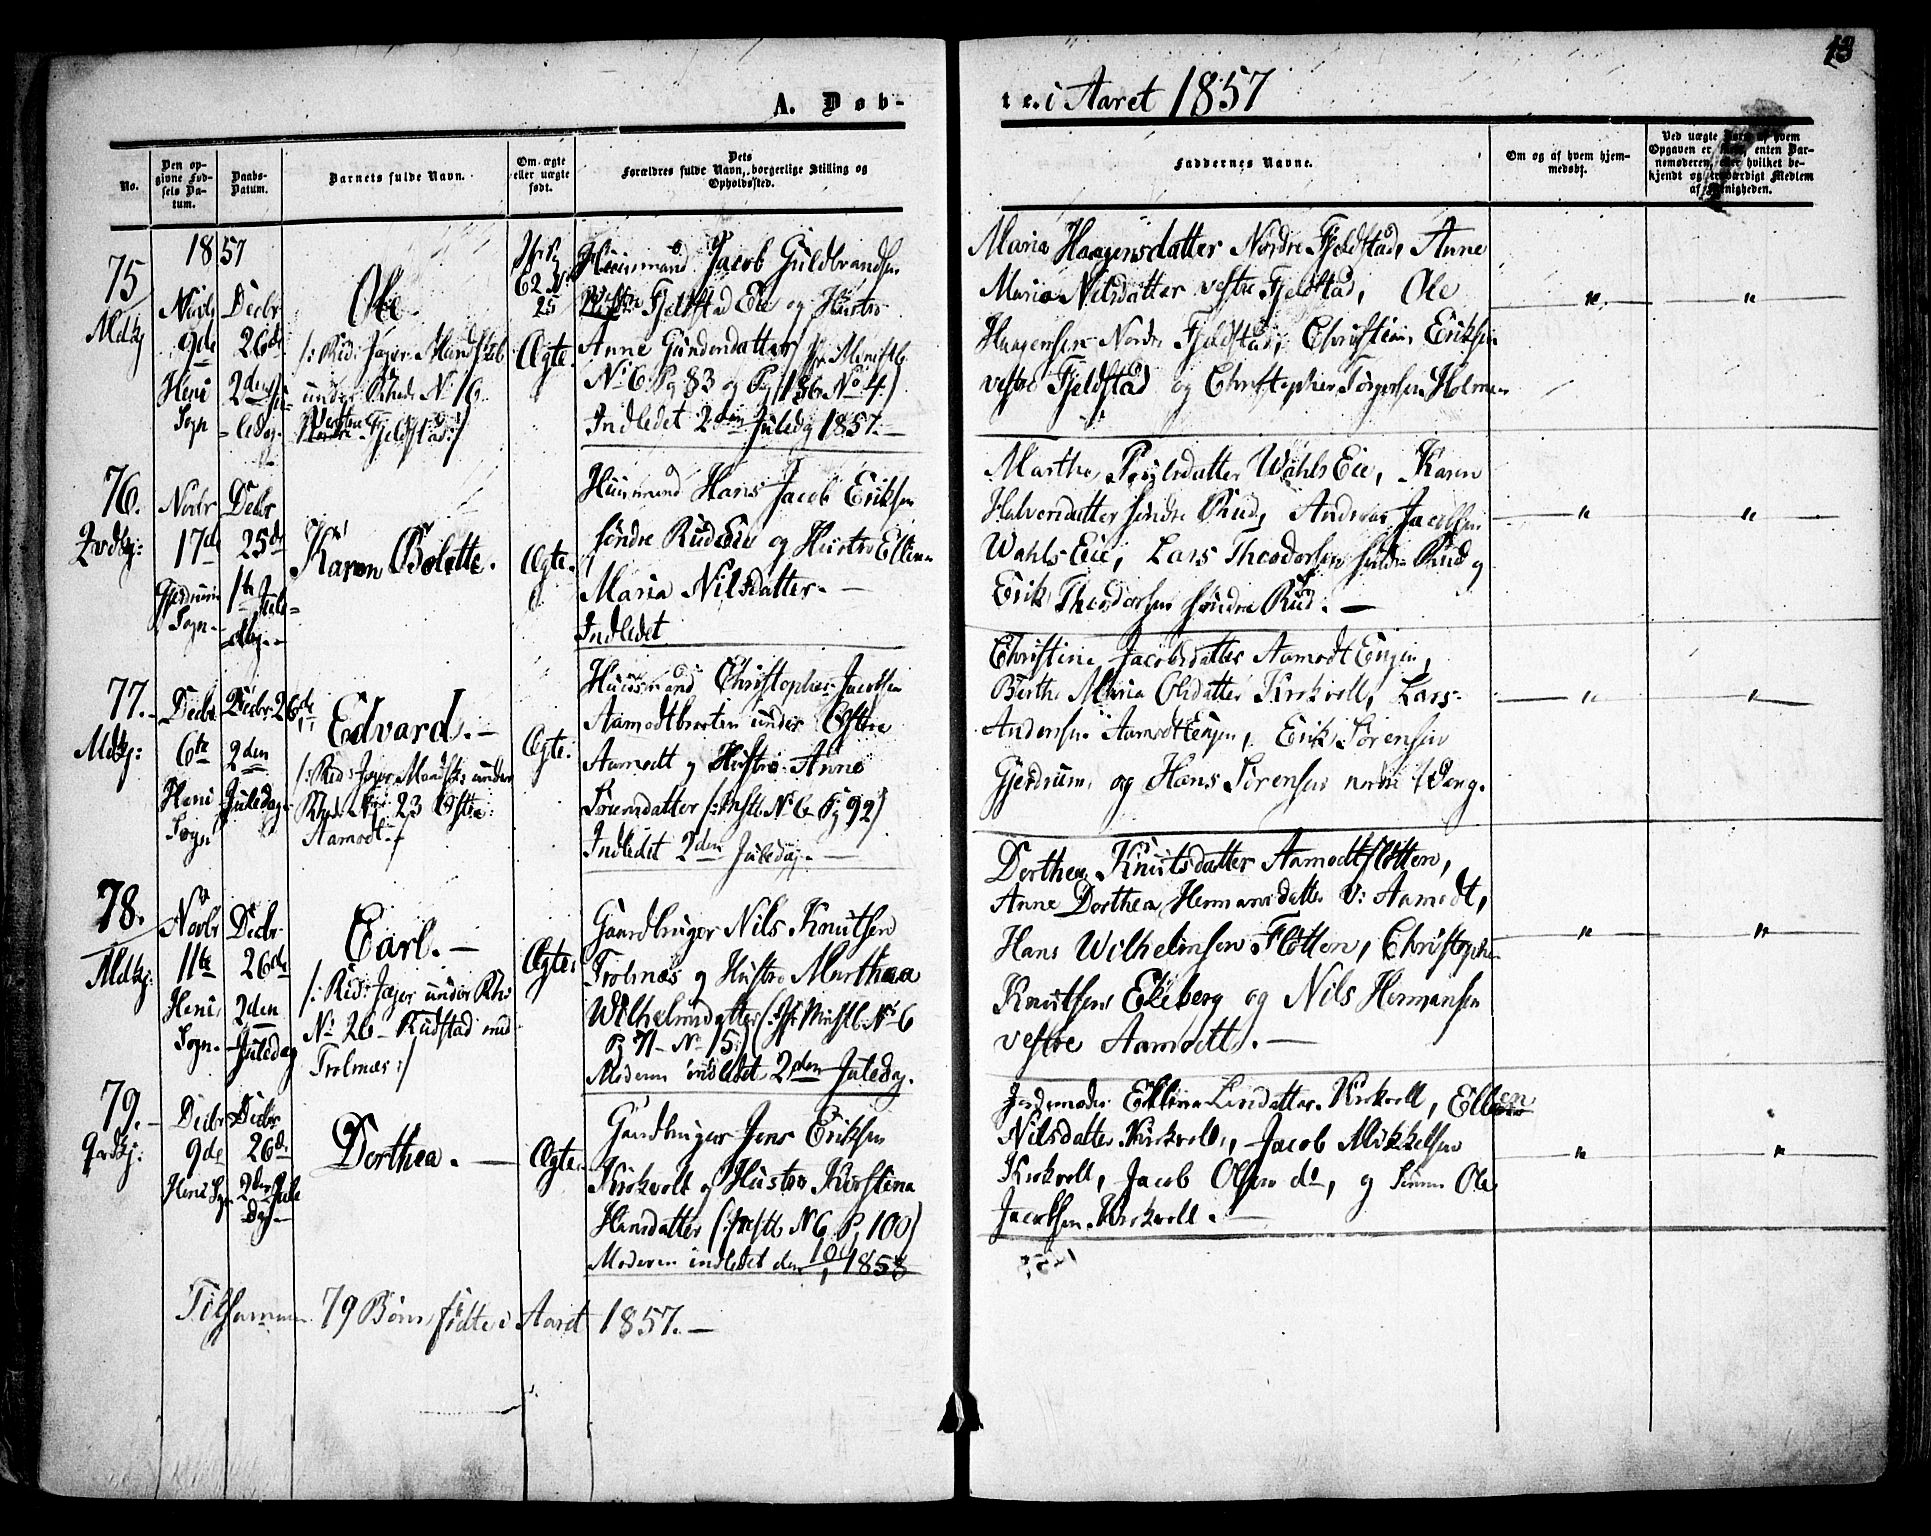 13
A. Døb-
te. i Aaret 1857
No.
Den opgivne Fødsels Datum.
Daabs-Datum.
Barnets fulde Navn.
Om ægte eller uægte født.
Dets Forældres fulde Navn, borgerlige Stilling og Opholdssted.
Faddernes Navne.
Om og af hvem hjemmedøbt.
Ved uægte Børn: af hvem Opgaven er skeet, enten Barnemoderen, eller hvilket bekjendt og troværdigt Medlem af Menigheden.
1857
75
Mdkj
Novbr
9de
Heni
Sogn
Decbr
26de
2den Ju-
ledag
Ole
under No. 16
Vestre
Nordre Fjeldstad:/
62 N.
25
Ægte.
Huusmand Jacob Guldbrandsen
Vestre Fjeldstad Eie og Hustro
Anne Gundersdatter
No 6. Pg 83 og Pg 186 No 4:)
Indledet 2den Juledag 1857.—
Maria Haagensdatter Nordre Fjeldstad, Anne
Maria Nilsdatter vestre Fjeldstad, Ole
Haagensen Nordre Fjeldstad, Christian Eriksen
vestre Fjeldstad og Christopher Torgersen Holmen
76.
Qvdkj:
Novbr
17de
Gjerdrum
Sogn.
Decbr
25de
1ste Jule-
dag.
Karen Bolette.
Ægte.
Huusmand Hans Jacob Eriksen
søndre Rud Eie og Hustro Ellen
Maria Nilsdatter.—
Indledet
Marthe Poulsdatter Wahls Eie, Karen
Halvorsdatter søndre Rud, Andreas Jacobsen
Wahls Eie, Lars Theodorsen søndre Rud og
Erik Theodorsen søndre Rud.—
77.
Mdkj:
Decbr
6te
Heni
Sogn
Decbr 26de
2den
Juledag
Edvard.—
/: Rid: Jæger Mandsk: under
23 Østre
Aamodt.
Ægte.
Huusmand Christopher Jacobsen
Aamodtbraaten under Østre
Aamodt og Hustro Anne
Sørensdatter (: Mstb. No 6 Pg 92)
Indledet 2den Juledag.—
Christine Jacobsdatter Aamodt Engen,
Berthe Maria Olsdatter Kirkvold, Lars
Andersen Aamodt Engen, Erik Sørensen
Gjerdrum, og Hans Sørensen nordre Wang.
78.
Mdkj:
Novbr
11te
Heni
Sogn.
Decbr
26de
2den
Juledag
Carl.—
/: Rid: Jæger under
No 26 Rudstad med
Trolnæs:/
Ægte.
Gaardbruger Nils Knutsen
Trolnæs og Hustro Marthea
Wilhelmsdatter (: Minstb. No 6
Pg 71 No 15:)
Moderen indledet 2den Juledag.
Dorthea Knutsdatter Aamodtflotten,
Anne Dorthea Hermansdatter v: Aamodt,
Hans Wilhelmsen Flotten, Christopher
Knutsen Ekeberg og Nils Hermansen
vestre Aamodt.—
79.
Qvdkj:
Decbr
9de
Heni Sogn
Decbr
26de
2den Jule
dag.—
Dorthea.—
Ægte.
Gaardbruger Jens Eriksen
Kirkvold og Hustro Kirstina
Hansdatter (: Mstb. No 6 P. 100)
Moderen indledet den 10/1 1858
Jordemoder Ellen Larsdatter Kirkvold, Ellen
Nilsdatter Kirkvold, Jacob Mikkelsen
Kirkvold, Jacob Olsen do, og Ole
Jacobsen Kirkvold.—
Tilsammen 79 Børn fødte i Aaret 1857.—